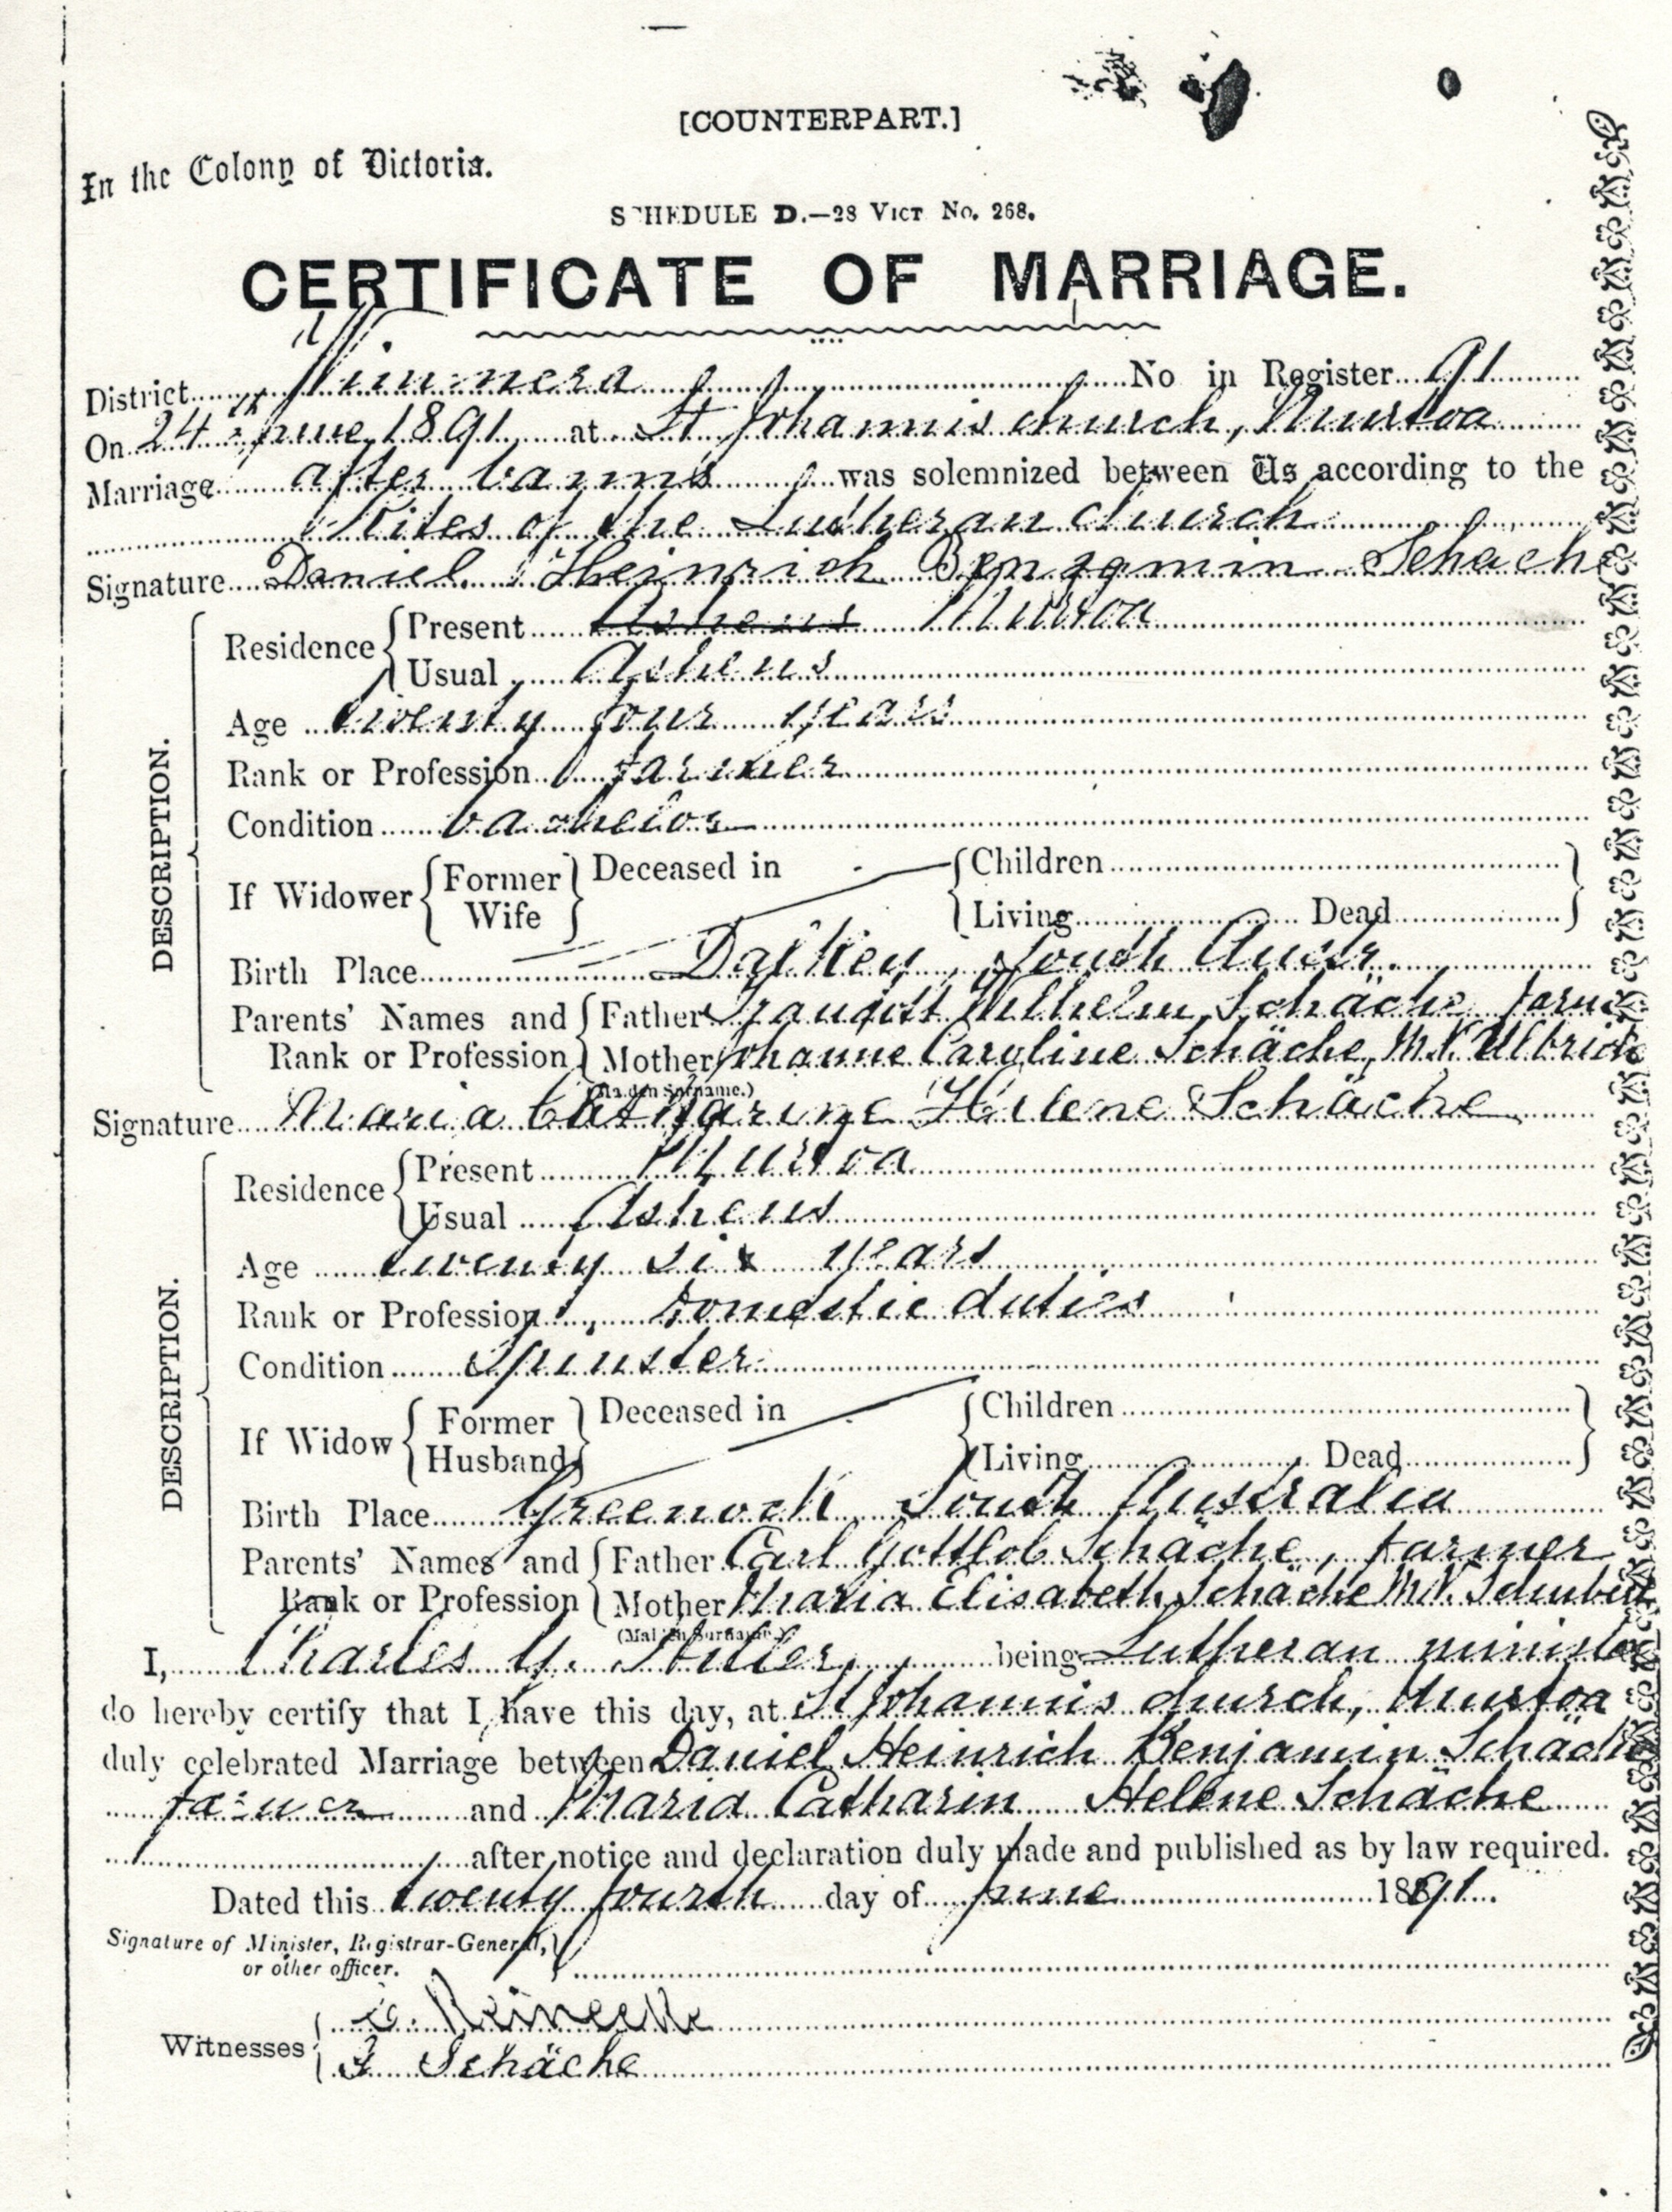 [COUNTERPART.]
In the Colony of Victoria.
SCHEDULE D.—28 VICT No. 268.
CERTIFICATE OF MARRIAGE.
District Wimmera No in Register 91
On 24th June 1891 at St Johannis church, Murtoa
Marriage after banns was solemnized between Us according to the
Rites of the Lutheran Church
Signature Daniel Heinrich Benjamin Schache
DESCRIPTION.
Residence Present Ashens Murtoa
Usual Ashens
Age twenty four years
Rank or Profession farmer
Condition bachelor
If Widower Former Wife Deceased in Children
Living Dead
Birth Place South Austr.
Parents' Names and Father Wilhelm Schäche,
Rank or Profession Mother Johanne Caroline Schäche, M.N.
(Maiden Surname.)
Signature Maria Catharine Helene Schäche
DESCRIPTION.
Residence Present Murtoa
Usual Ashens
Age twenty six years
Rank or Profession domestic duties
Condition Spinster
If Widow Former Husband Deceased in Children
Living Dead
Birth Place Greenock South Australia
Parents' Names and Father Carl Gottlob Schäche, farmer
Rank or Profession Mother Maria Elisabeth Schäche M.N.
(Maiden Surname.)
I, Charles G. being Lutheran minister
do hereby certify that I have this day, at St Johannis church, Murtoa
duly celebrated Marriage between Daniel Heinrich Benjamin Schäche
farmer and Maria Catharin Helene Schäche
after notice and declaration duly made and published as by law required.
Dated this twenty fourth day of June 1891.
Signature of Minister, Registrar-General,
or other officer.
Witnesses
Schäche